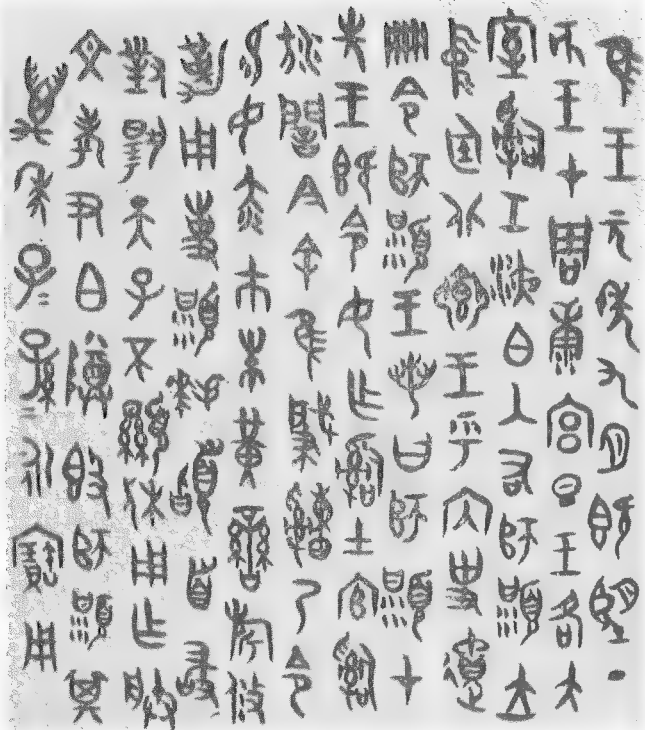 隹王元年九月既望丁
亥王才周康宮旦王各大
室𤔲工液白入右師顈立
中廷北鄉王乎內史遺
冊令師顈王若曰師顈才
先王既令女乍𤔲土官𤔲
汸闇今余隹肇𤕌乃令
易女赤巿朱黃䜌旂攸
勒用事顈拜𩒨首敢
對揚天子不顯休用乍朕
文考尹白尊簋師顈其
萬年子=孫=永寶用